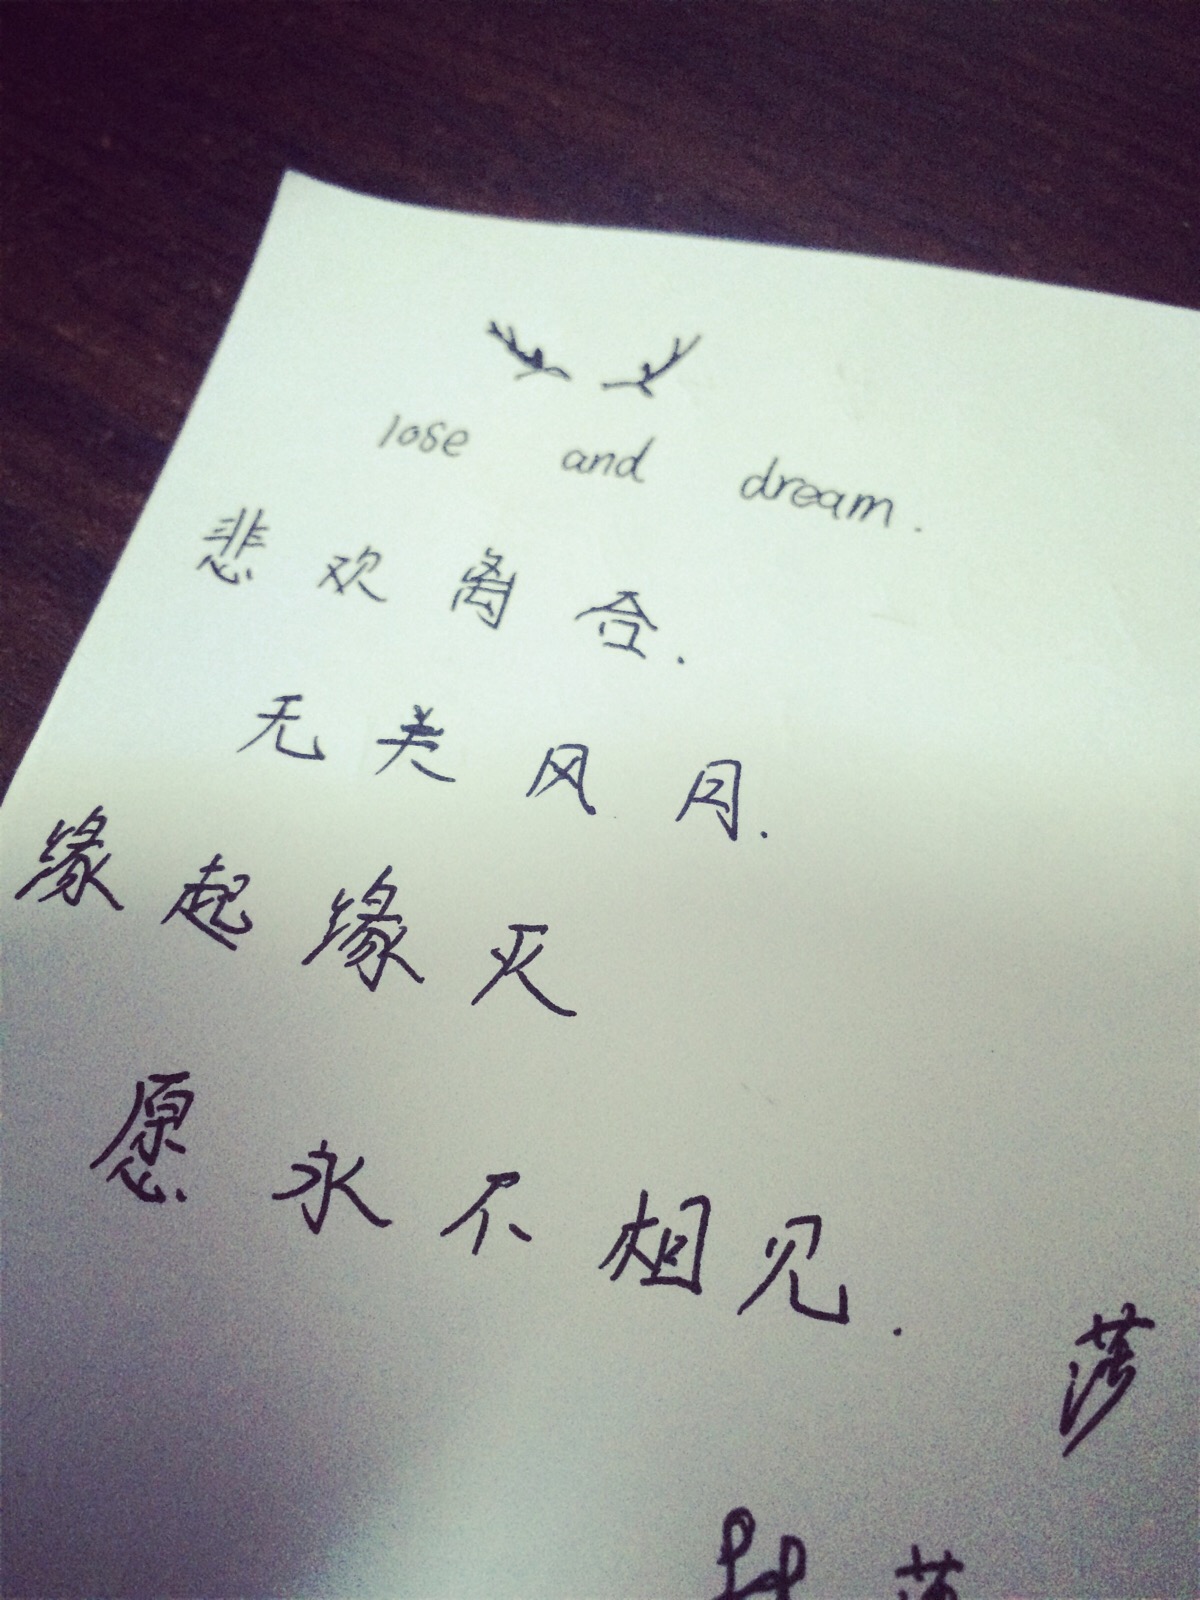 lose and dream.
悲欢离合.
无关风月.
缘起缘灭
愿永不相见.
莎